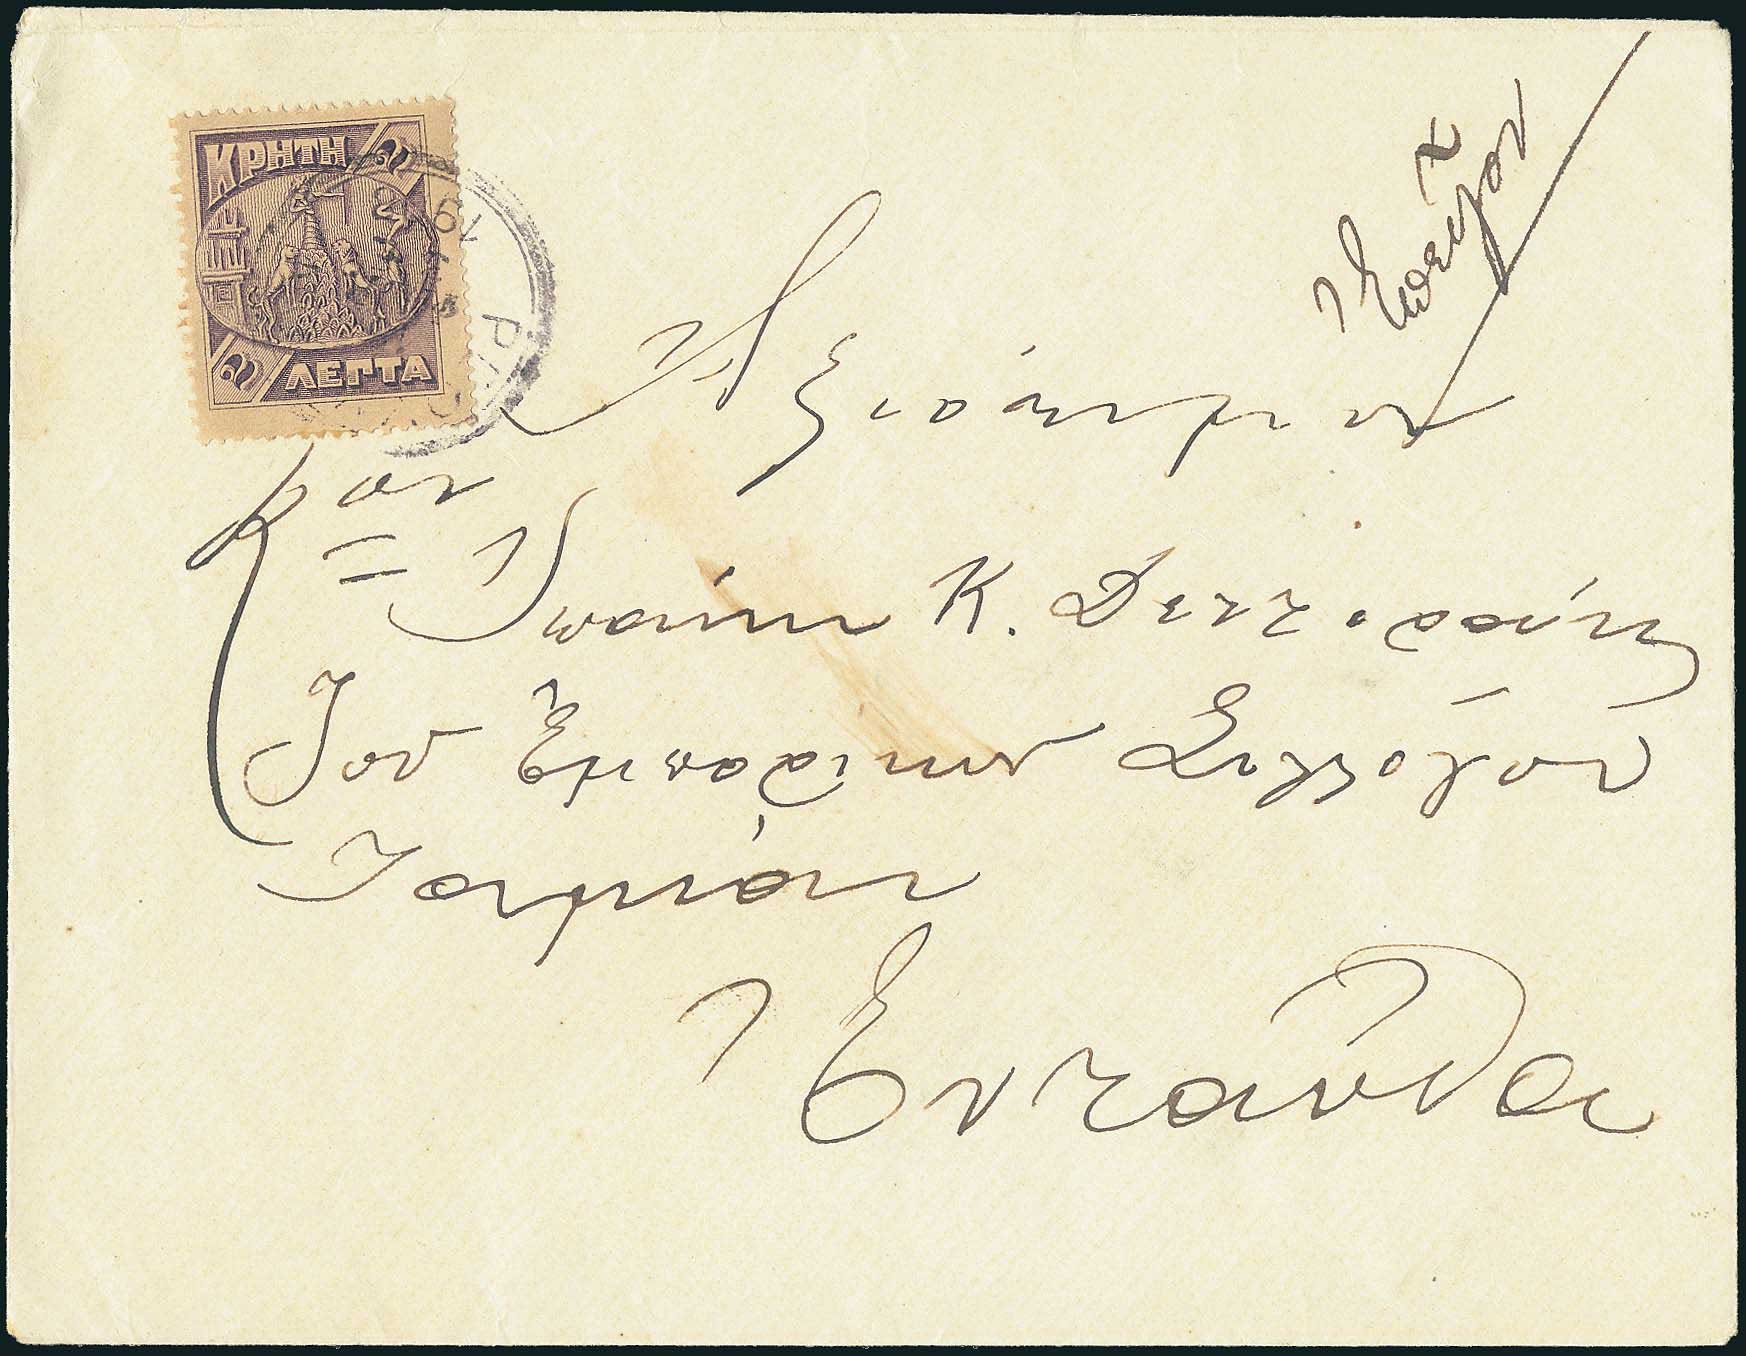 ΚΡΗΤΗ 2
2 ΛΕΠΤΑ
Ἐπεῖγον
Ἀξιότιμον
Κον
Ἰωάννην Κ.
Τοῦ Ἐμπορικοῦ Συλλόγου
Ταμίαν
Ἐνταῦθα